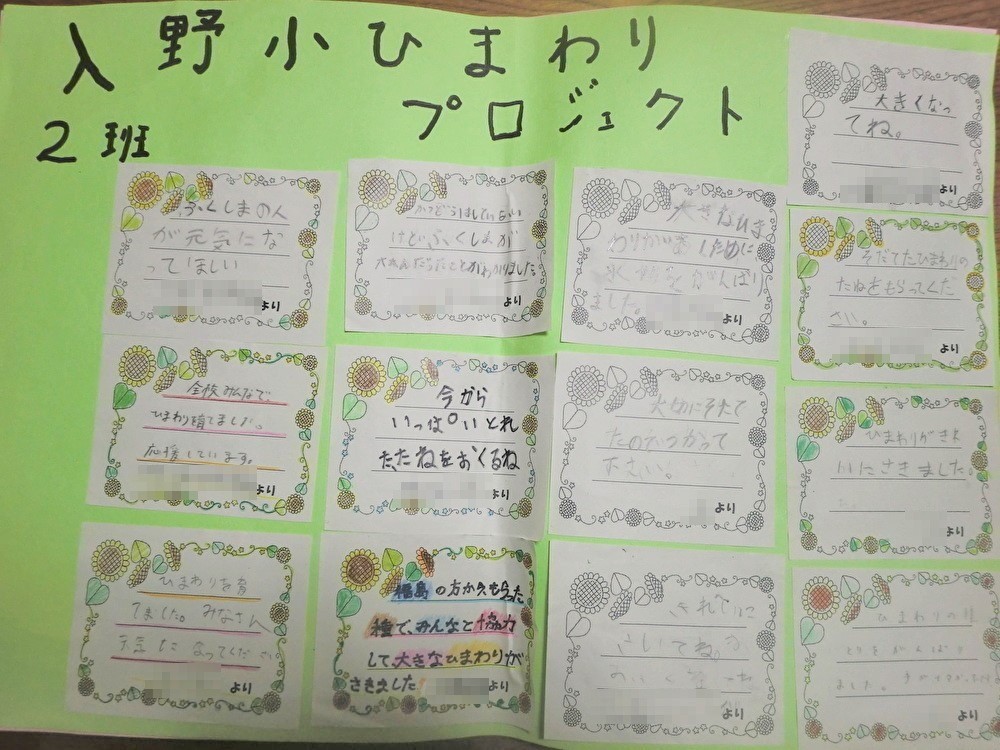 入野小ひまわり
プロジェクト
2班
ふくしまの人
が元気にな
ってほしい
より
けどふくしまが
大へんだったことがわかりました。
より
大きなひま
わりが咲くために
水やりをがんばり
ました。
より
大きくなっ
てね。
より
そだてたひまわりの
たねをもらってくだ
さい。
より
全校みんなで
ひまわり育てました。
応援しています。
より
今から
いっぱいとれ
たたねをおくるね
より
大切にそだて
たのでつかって
下さい。
より
ひまわりがきれ
いにさきました。
より
ひまわりを育
てました。みなさん
元気になってください
より
福島の方からもらった
種で、みんなと協力
して大きなひまわりが
さきました
より
きれいに
さいてね。
より
ひまわりの
をがんばり
ました。
より